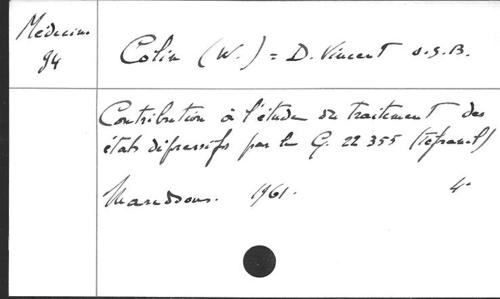 Médecine
94
Colin (W.) = D. Vincent o.s.B.
Contribution à l'étude du traitement des
états dépressifs par le G. 22 355 (Tofranil)
Maredsous. 1961. 4°